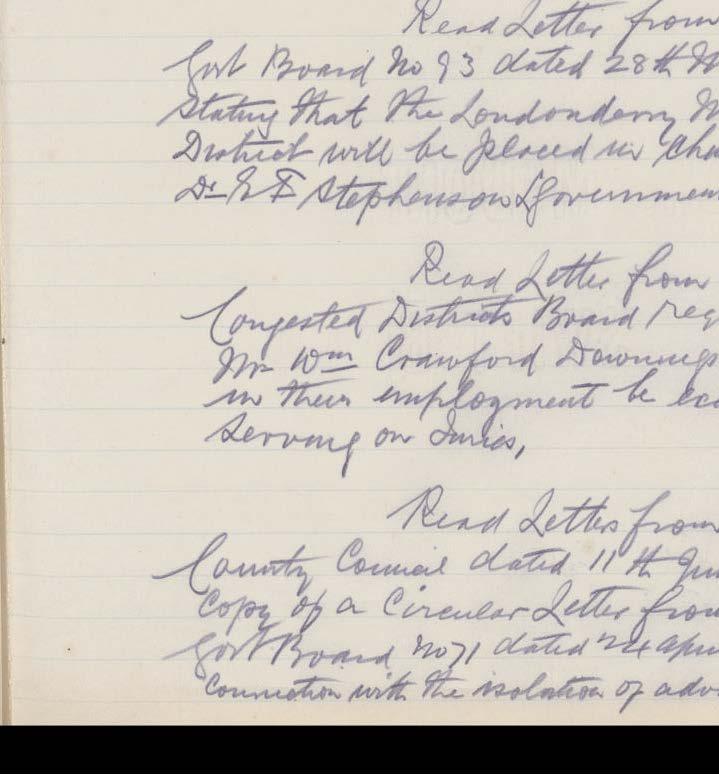 Read Letter from
Govt Board No 93 dated 28th
Stating that the Londonderry
District will be placed in Cha
Dr E F Stephenson (Governmen
Read Letter from
Congested Districts Board req
Mr Wm Crawford Downings
in their employment be exc
Serving on Juries,
Read Letter from
County Council dated 11th Ju
Copy of a Circular Letter from
Govt Board No 71 dated 24 April
Connection with the isolation of adv